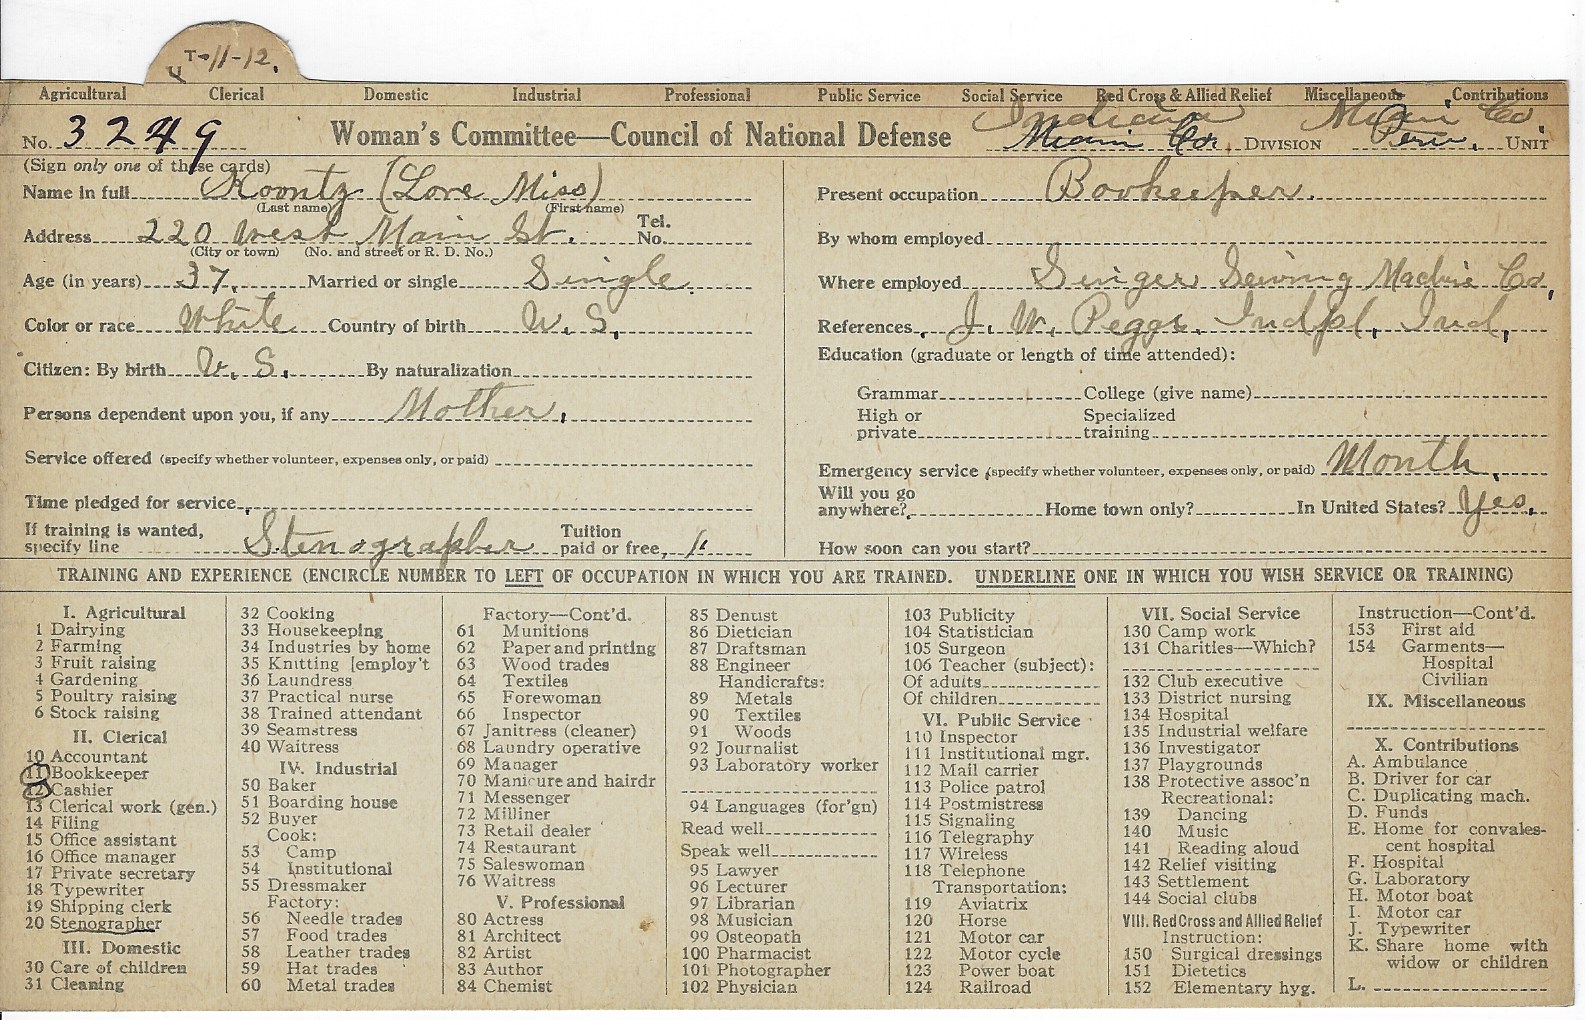 T-11-12.
Agricultural Clerical Domestic Industrial Professional Public Service Social Service Red Cross & Allied Relief Miscellaneous Contributions
Indiana Miami Co.
No. 3249 Woman's Committee—Council of National Defense Miami Co. DIVISION Peru. UNIT
(Sign only one of these cards)
Name in full Koontz (Love Miss)
(Last name) (First name)
Address 220 West Main St. Tel. No.
(City or town) (No. and street or R. D. No.)
Age (in years) 37. Married or single Single.
Color or race White Country of birth U. S.
Citizen: By birth U. S. By naturalization
Persons dependent upon you, if any Mother.
Service offered (specify whether volunteer, expenses only, or paid)
Time pledged for service
If training is wanted,
specify line Stenographer Tuition
paid or free
Present occupation Bookeeper.
By whom employed
Where employed Singer Sewing Machine Co.
References J. W. Peggs. Indpl. Ind.
Education (graduate or length of time attended):
Grammar College (give name)
High or
private Specialized
training
Emergency service (specify whether volunteer, expenses only, or paid) Month.
Will you go
anywhere? Home town only? In United States? Yes.
How soon can you start?
TRAINING AND EXPERIENCE (ENCIRCLE NUMBER TO LEFT OF OCCUPATION IN WHICH YOU ARE TRAINED. UNDERLINE ONE IN WHICH YOU WISH SERVICE OR TRAINING)
I. Agricultural
1 Dairying
2 Farming
3 Fruit raising
4 Gardening
5 Poultry raising
6 Stock raising
II. Clerical
10 Accountant
11 Bookkeeper
12 Cashier
13 Clerical work (gen.)
14 Filing
15 Office assistant
16 Office manager
17 Private secretary
18 Typewriter
19 Shipping clerk
20 Stenographer
III. Domestic
30 Care of children
31 Cleaning
32 Cooking
33 Housekeeping
34 Industries by home
35 Knitting [employ't
36 Laundress
37 Practical nurse
38 Trained attendant
39 Seamstress
40 Waitress
IV. Industrial
50 Baker
51 Boarding house
52 Buyer
Cook:
53 Camp
54 Institutional
55 Dressmaker
Factory:
56 Needle trades
57 Food trades
58 Leather trades
59 Hat trades
60 Metal trades
Factory—Cont'd.
61 Munitions
62 Paper and printing
63 Wood trades
64 Textiles
65 Forewoman
66 Inspector
67 Janitress (cleaner)
68 Laundry operative
69 Manager
70 Manicure and hairdr
71 Messenger
72 Milliner
73 Retail dealer
74 Restaurant
75 Saleswoman
76 Waitress
V. Professional
80 Actress
81 Architect
82 Artist
83 Author
84 Chemist
85 Dentist
86 Dietician
87 Draftsman
88 Engineer
Handicrafts:
89 Metals
90 Textiles
91 Woods
92 Journalist
93 Laboratory worker
94 Languages (for'gn)
Read well
Speak well
95 Lawyer
96 Lecturer
97 Librarian
98 Musician
99 Osteopath
100 Pharmacist
101 Photographer
102 Physician
103 Publicity
104 Statistician
105 Surgeon
106 Teacher (subject):
Of adults
Of children
VI. Public Service
110 Inspector
111 Institutional mgr.
112 Mail carrier
113 Police patrol
114 Postmistress
115 Signaling
116 Telegraphy
117 Wireless
118 Telephone
Transportation:
119 Aviatrix
120 Horse
121 Motor car
122 Motor cycle
123 Power boat
124 Railroad
VII. Social Service
130 Camp work
131 Charities—Which?
132 Club executive
133 District nursing
134 Hospital
135 Industrial welfare
136 Investigator
137 Playgrounds
138 Protective assoc'n
Recreational:
139 Dancing
140 Music
141 Reading aloud
142 Relief visiting
143 Settlement
144 Social clubs
VIII. Red Cross and Allied Relief
Instruction:
150 Surgical dressings
151 Dietetics
152 Elementary hyg.
Instruction—Cont'd.
153 First aid
154 Garments—
Hospital
Civilian
IX. Miscellaneous
X. Contributions
A. Ambulance
B. Driver for car
C. Duplicating mach.
D. Funds
E. Home for convales-
cent hospital
F. Hospital
G. Laboratory
H. Motor boat
I. Motor car
J. Typewriter
K. Share home with
widow or children
L.